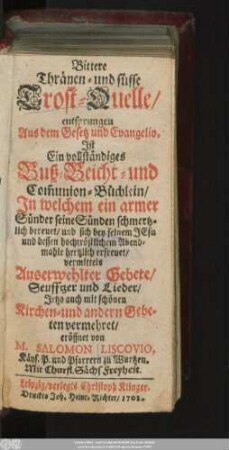 Bittere
Thränen- und süsse
Trost-Quelle/
entsprungen
Aus dem Gesetz und Evangelio.
Ist
Ein vollständiges
Buß-Beicht- und
Communion-Büchlein/
In welchem ein armer
Sünder seine Sünden schmertz-
lich bereuet/ und sich bey seinem JEsu
und dessen hochtröstlichem Abend-
mahle hertzlich erfreuet/
vermittels
Auserwehlter Gebete/
Seuffzer und Lieder/
Jetzo auch mit schönen
Kirchen- und andern Gebe-
ten vermehret/
eröffnet von
M. SALOMON LISCOVIO,
Käys. P. und Pfarrern zu Wurtzen.
Mit Churfl. Sächs. Freyheit.
Leipzig/ verlegts Christoph Klinger.
Druckts Joh. Heinr. Richter/ 1702.